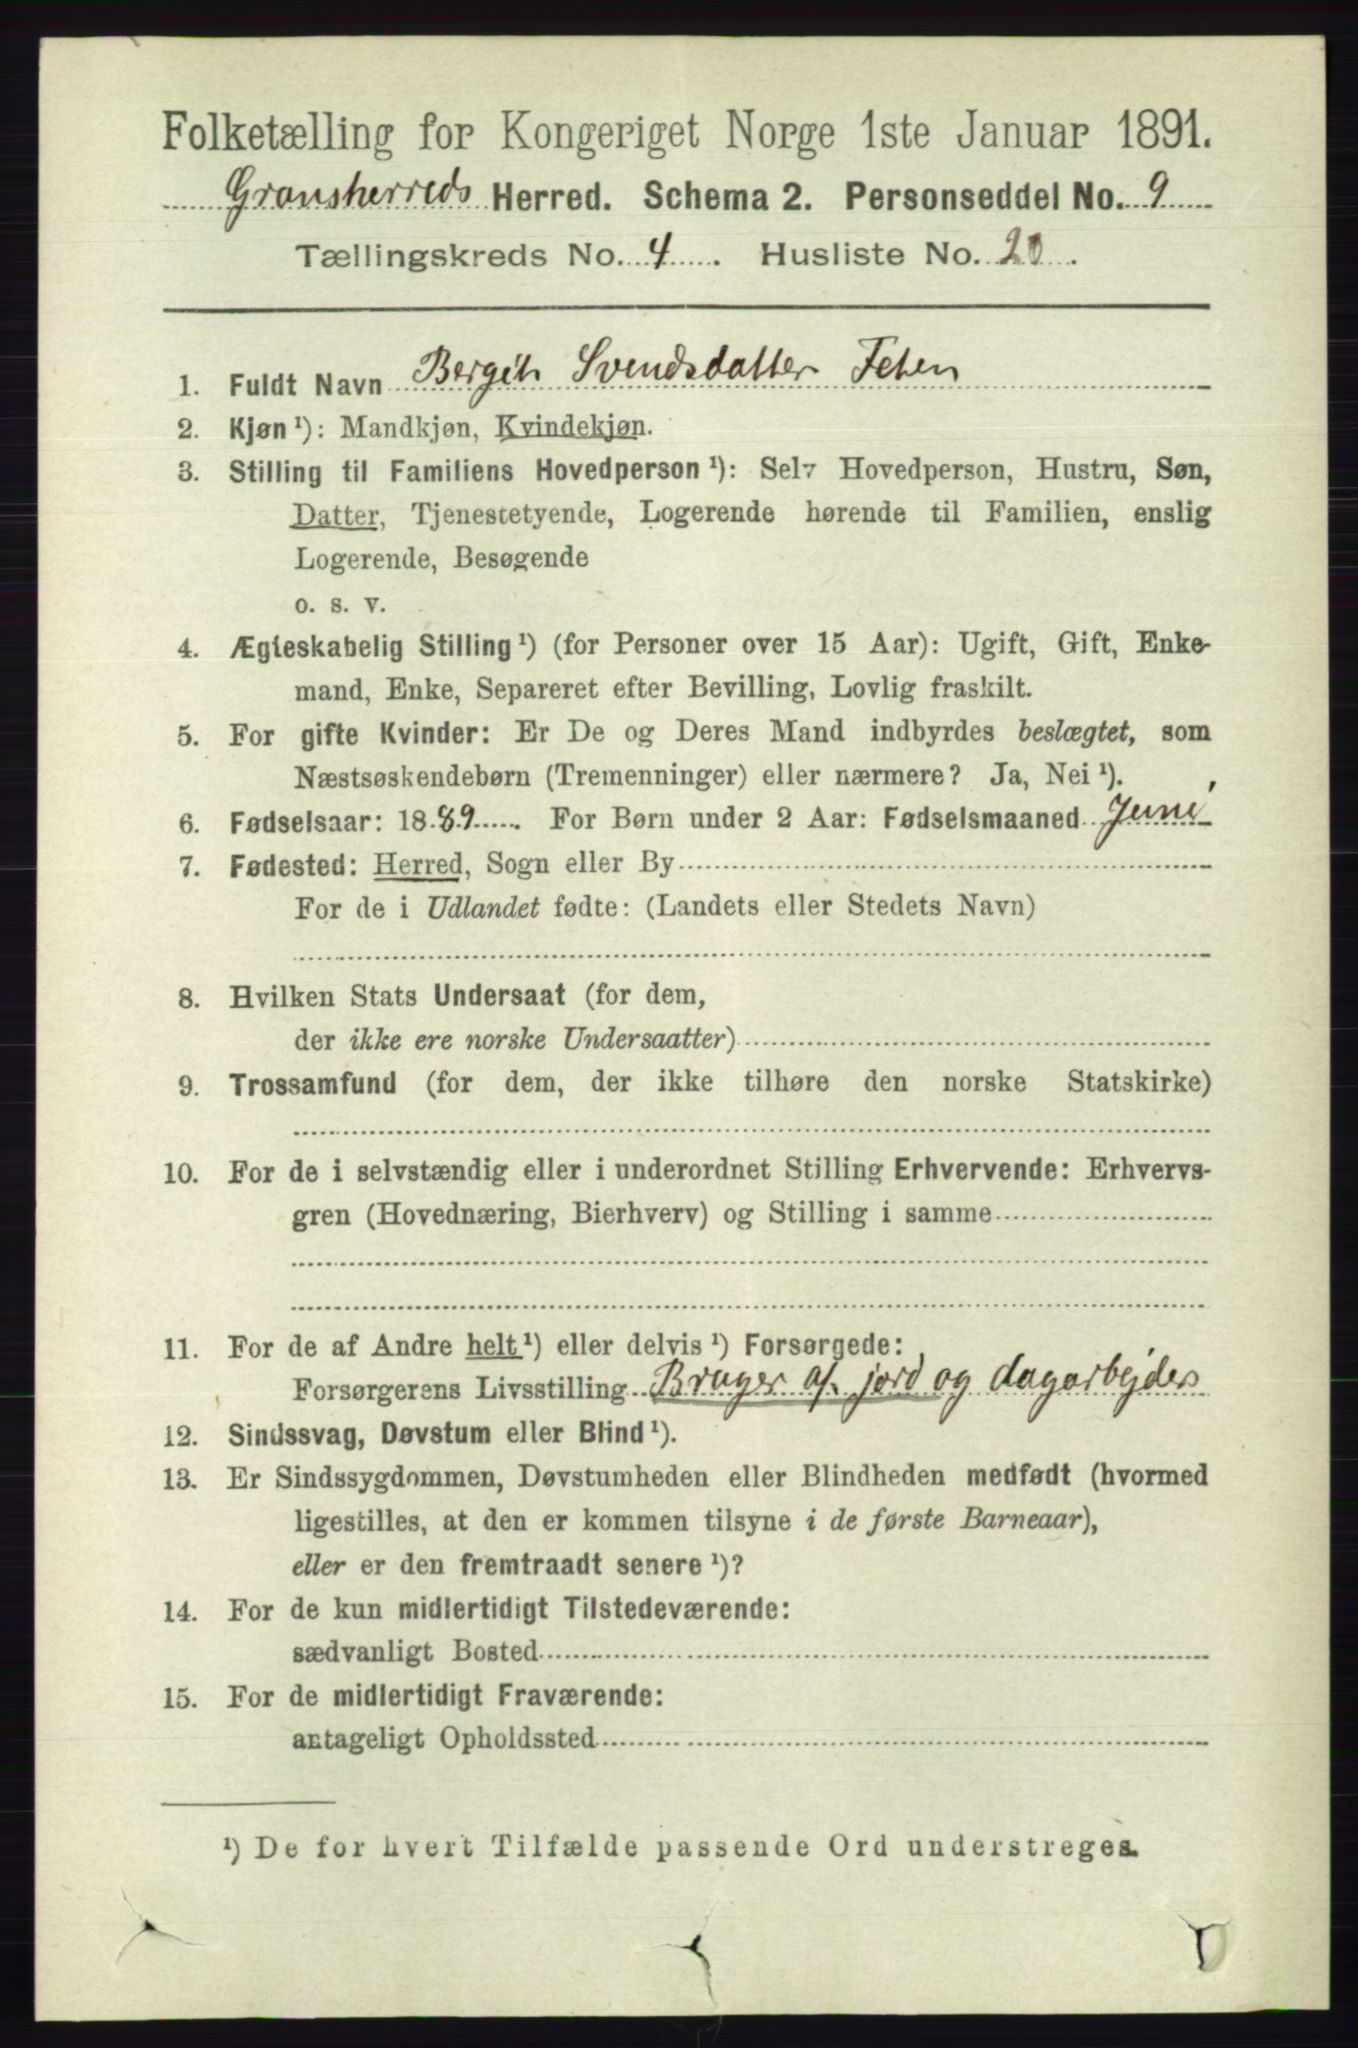 Folketælling for Kongeriget Norge 1ste Januar 1891.
Gransherreds Herred. Schema 2. Personseddel No. 9
Tællingskreds No. 4. Husliste No. 20.
1. Fuldt Navn Bergit Svendsdatter Feten
2. Kjøn¹): Mandkjøn, Kvindekjøn.
3. Stilling til Familiens Hovedperson¹): Selv Hovedperson, Hustru, Søn,
Datter, Tjenestetyende, Logerende hørende til Familien, enslig
Logerende, Besøgende
o. s. v.
4. Ægteskabelig Stilling¹) (for Personer over 15 Aar): Ugift, Gift, Enke-
mand, Enke, Separeret efter Bevilling, Lovlig fraskilt.
5. For gifte Kvinder: Er De og Deres Mand indbyrdes beslægtet, som
Næstsøskendebørn (Tremenninger) eller nærmere? Ja, Nei¹).
6. Fødselsaar: 1889. For Børn under 2 Aar: Fødselsmaaned Juni
7. Fødested: Herred, Sogn eller By
For de i Udlandet fødte: (Landets eller Stedets Navn)
8. Hvilken Stats Undersaat (for dem,
der ikke ere norske Undersaatter)
9. Trossamfund (for dem, der ikke tilhøre den norske Statskirke)
10. For de i selvstændig eller i underordnet Stilling Erhvervende: Erhvervs-
gren (Hovednæring, Bierhverv) og Stilling i samme
11. For de af Andre helt¹) eller delvis¹) Forsørgede:
Forsørgerens Livsstilling Bruger af jord og dagarbejder
12. Sindssvag, Døvstum eller Blind¹).
13. Er Sindssygdommen, Døvstumheden eller Blindheden medfødt (hvormed
ligestilles, at den er kommen tilsyne i de første Barneaar),
eller er den fremtraadt senere¹)?
14. For de kun midlertidigt Tilstedeværende:
sædvanligt Bosted
15. For de midlertidigt Fraværende:
antageligt Opholdssted
¹) De for hvert Tilfælde passende Ord understreges.